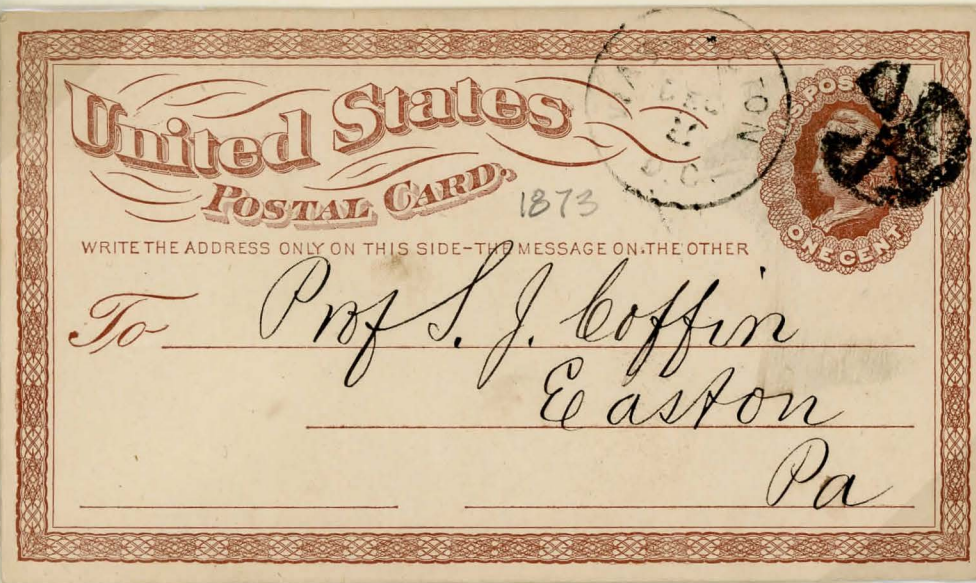 United States
POSTAL CARD.
WASHINGTON
DEC
D.C.
U.S. POSTAGE
ONE CENT
1873
WRITE THE ADDRESS ONLY ON THIS SIDE-THE MESSAGE ON THE OTHER
To Prof S. J. Coffin
Easton
Pa